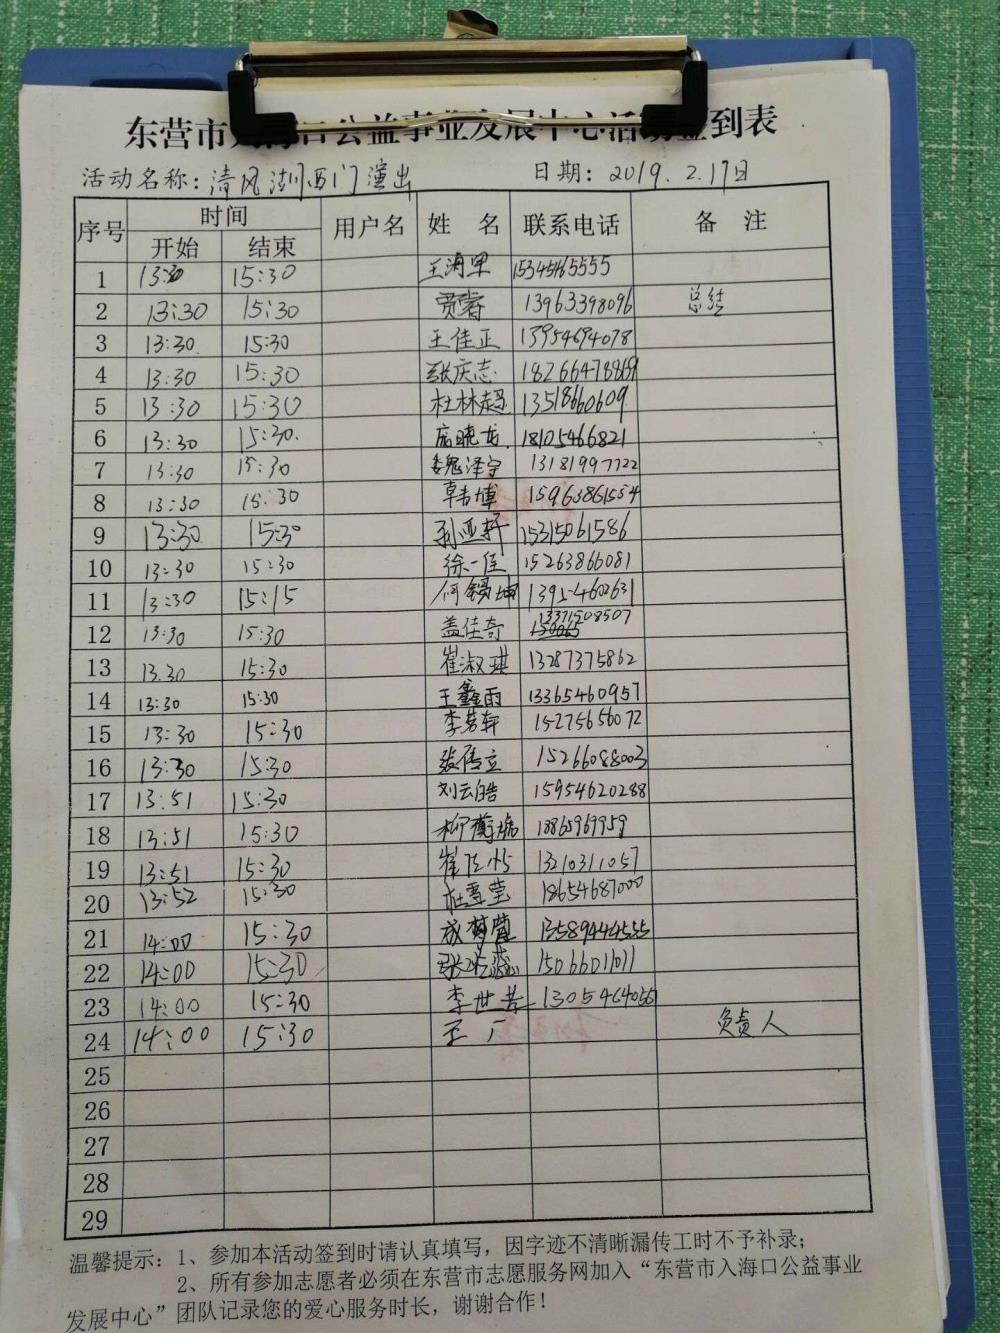 东营市 口公益事业发展中心活动签到表
活动名称：清风湖西门演出 日期：2019.2.17日
序号 时间 用户名 姓 名 联系电话 备 注
开始 结束
1 13:30 15:30 王海军 15345465555
2 13:30 15:30 贾睿 13963398096 总结
3 13:30 15:30 王佳正 13954694078
4 13:30 15:30 张庆志
5 13:30 15:30 杜林超 13518660609
6 13:30 15:30 晓龙 18105466821
7 13:30 15:30 魏泽宇 13181997722
8 13:30 15:30 韩博 15963861554
9 13:30 15:30 15315061586
10 13:30 15:30 徐一佳 15263866081
11 13:30 15:15 何锡坤
12 13:30 15:30 盖佳奇 13371508507
13 13.30 15:30 崔淑琪 13287375862
14 13:30 15:30 王鑫雨 13365460957
15 13:30 15:30 李若轩 15275656072
16 13:30 15:30 15266088003
17 13:51 15:30 刘云皓 15954620288
18 13:51 15:30 柳 18865969959
19 13:51 15:30 崔 13210311057
20 13:52 15:30 杜雪莹 18654687000
21 14:00 15:30 13589444555
22 14:00 15:30 张 15066011011
23 14:00 15:30 李世芳
24 14:00 15:30 王 负责人
25
26
27
28
29
温馨提示：1、参加本活动签到时请认真填写，因字迹不清晰漏传工时不予补录；
2、所有参加志愿者必须在东营市志愿服务网加入“东营市入海口公益事业
发展中心”团队记录您的爱心服务时长，谢谢合作！